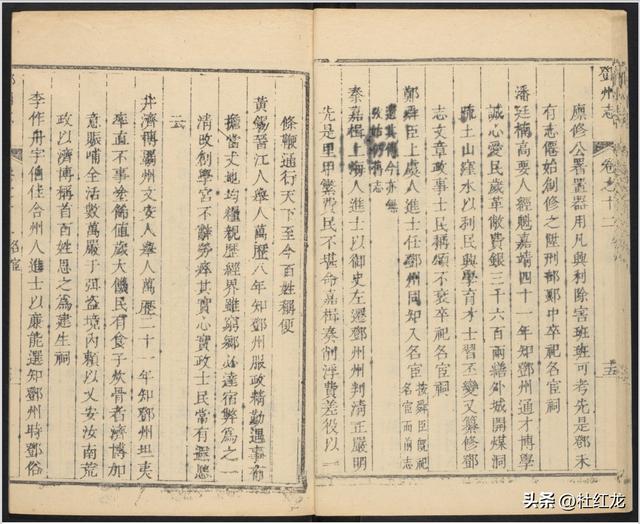 鄧州志
卷之十二
廪修公署置器用凡興利除害班班可考先是鄧未
有志僊始創修之陞刑部郎中卒祀名宦祠
潘廷楠高要人經魁嘉靖四十一年知鄧州通才博學
誠心愛民歲革敝費銀三千六百兩繕外城開媒洞
疏土山窪水以利民興學育才士習丕變又纂修鄧
志文章政事士民稱頌不衰卒祀名宦祠
鄭舜臣上虞人進士任鄧州同知入名宦
按舜臣旣祀
名宦而前志
秦嘉楫上海人進士以御史左遷鄧州州判清正嚴明
先是里甲繁費民不堪命嘉楫奏削浮費差役以一
條鞭通行天下至今百姓稱便
黃錫晉江人舉人萬曆八年知鄧州服政精勤遇事
擔當丈地均糧親歷經界雖窮鄉必達宿弊為之一
清改創學宮不辭勞瘁其實心實政士民常有遐思
云
井濟博霸州文安人舉人萬曆二十一年知鄧州坦夷
率直不事塗飾值歲大饑民有食子炊骨者濟博加
意賑哺全活數萬嚴于弭盜境內頼以乂安汝南荒
政以濟博稱首百姓思之為建生祠
李作舟字 合州人進士以廉能選知鄧州時鄧俗
名宦
头条 @杜红龙